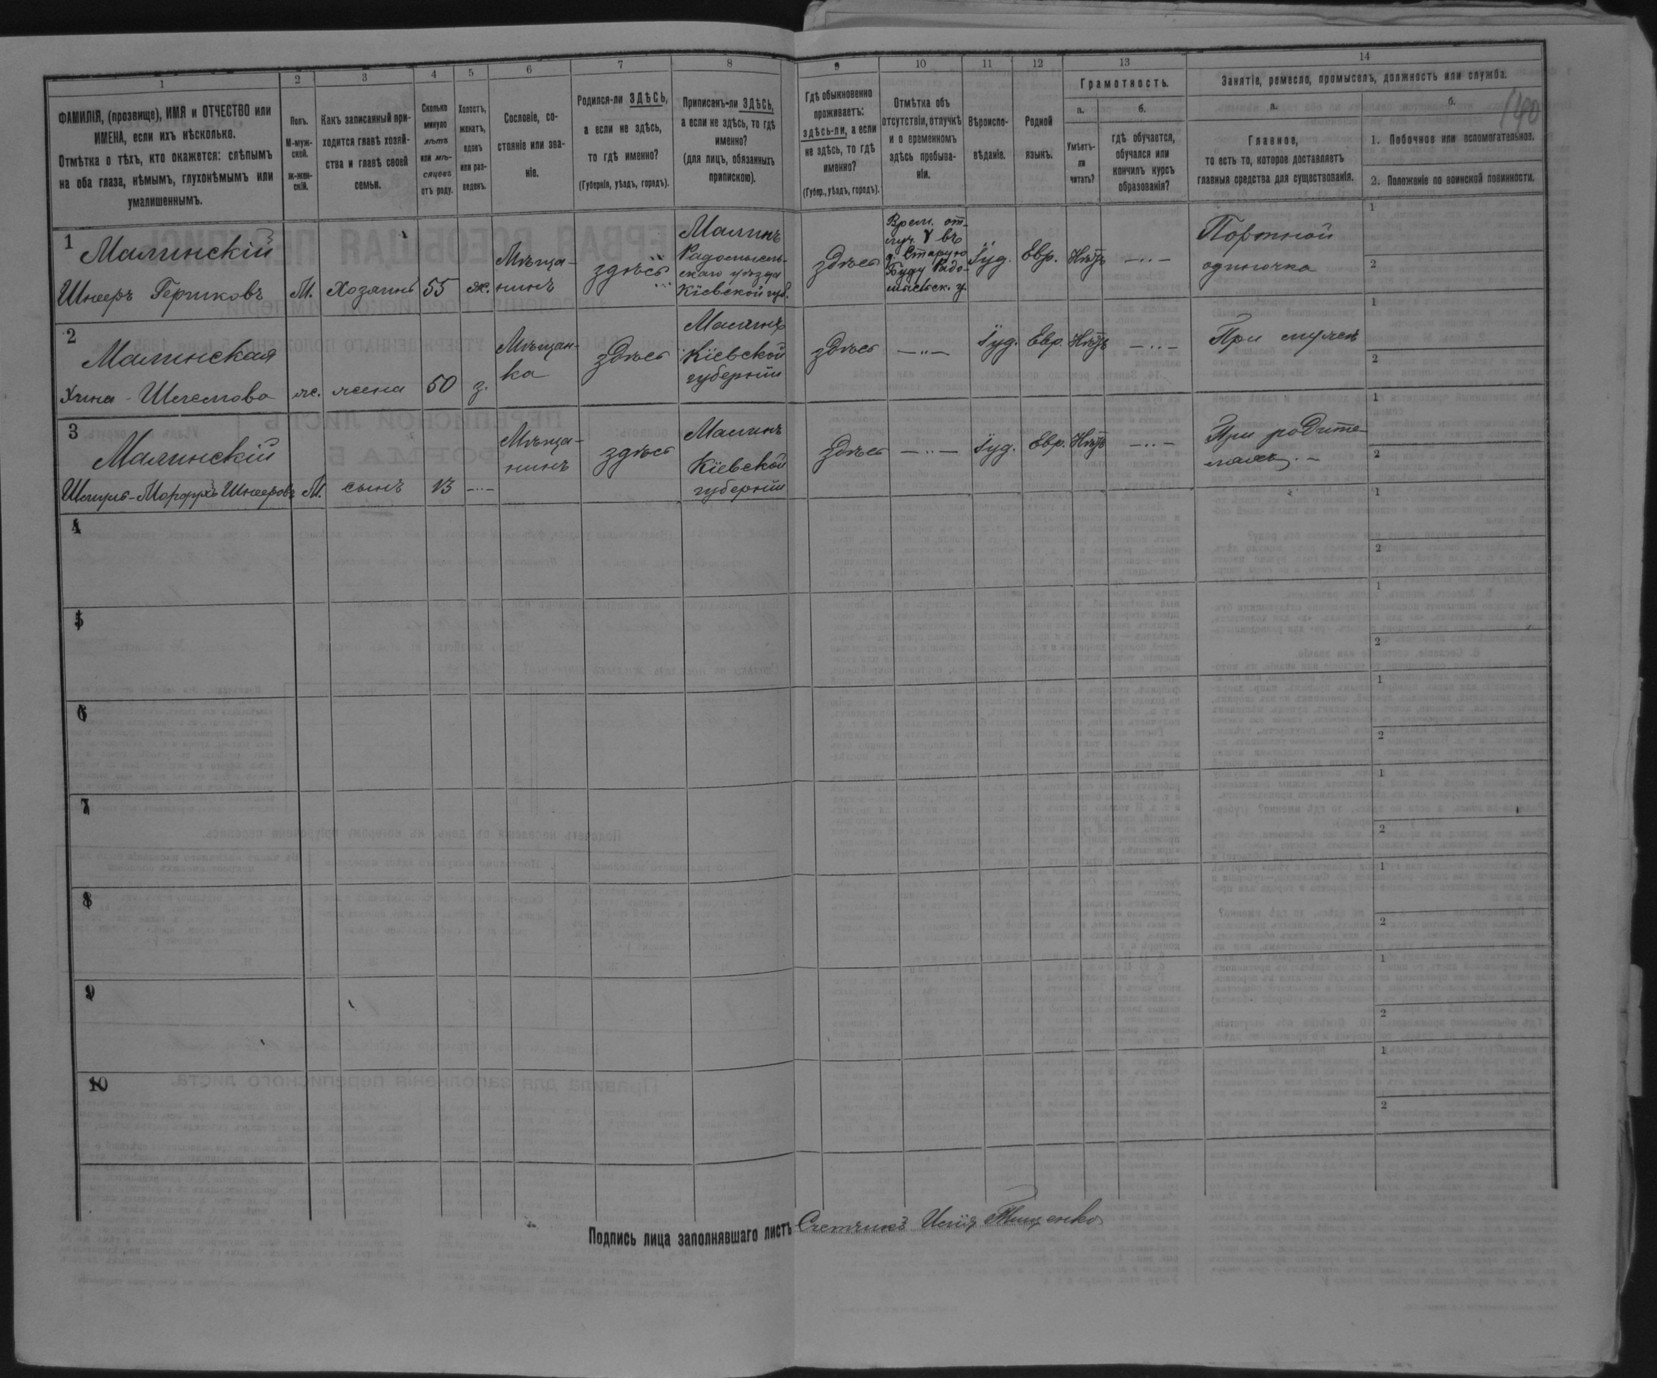 1
2
3
4
5
6
7
8
9
10
11
12
13
14
ФАМИЛІЯ, (прозвище), ИМЯ и ОТЧЕСТВО или
ИМЕНА, если ихъ нѣсколько.
Отмѣтка о тѣхъ, кто окажется: слѣпымъ
на оба глаза, нѣмымъ, глухонѣмымъ или
умалишеннымъ.
Полъ.
М-муж-
ской.
ж-жен-
скій.
Какъ записанный при-
ходится главѣ хозяй-
ства и главѣ своей
семьи.
Сколько
минуло
лѣтъ
или мѣ-
сяцевъ
отъ роду.
Холостъ,
женатъ,
вдовъ
или раз-
веденъ.
Сословіе, со-
стояніе или зва-
ніе.
Родился-ли ЗДѢСЬ,
а если не здѣсь,
то гдѣ именно?
(Губернія, уѣздъ, городъ).
Приписанъ-ли ЗДѢСЬ,
а если не здѣсь, то гдѣ
именно?
(для лицъ, обязанныхъ
припискою).
Гдѣ обыкновенно
проживаетъ:
здѣсь-ли, а если
не здѣсь, то гдѣ
именно?
(Губер., уѣздъ, городъ).
Отмѣтка объ
отсутствіи, отлучкѣ
и о временномъ
здѣсь пребыва-
ніи.
Вѣроиспо-
вѣданіе.
Родной
языкъ.
Грамотность.
а.
б.
Умѣетъ-
ли
читать?
гдѣ обучается,
обучался или
кончилъ курсъ
образованія?
Занятіе, ремесло, промыселъ, должность или служба.
а.
б.
Главное,
то есть то, которое доставляетъ
главныя средства для существованія.
1. Побочное или вспомогательное.
2. Положеніе по воинской повинности.
1
Малинскій
Шнееръ Гершковъ
М.
Хозяинъ
55
ж.
Мѣща-
нинъ
здѣсь
Малинъ
Радомысль-
скаго уѣзда
Кіевской губ.
здѣсь
Врем. от-
луч. въ
д. Старую
Буду Радо-
мысльск. у.
Іуд.
Евр.
Нѣтъ
—"—
Портной
одиночка
1
2
2
Малинская
Хана - Шлемова
ж.
жена
50
з.
Мѣщан-
ка
здѣсь
Малинъ
Кіевской
губерніи
здѣсь
—"—
Іуд.
Евр.
Нѣтъ
—"—
При мужѣ
1
2
3
Малинскій
Шмуль-Мордухъ Шнееровъ
М.
сынъ
13
—"—
Мѣща-
нинъ
здѣсь
Малинъ
Кіевской
губерніи
здѣсь
—"—
Іуд.
Евр.
Нѣтъ
—"—
При родите-
ляхъ. —
1
2
4
1
2
5
1
2
6
1
2
7
1
2
8
1
2
9
1
2
10
1
2
Подпись лица заполнявшаго листъ Счетчикъ Илія Тищенко